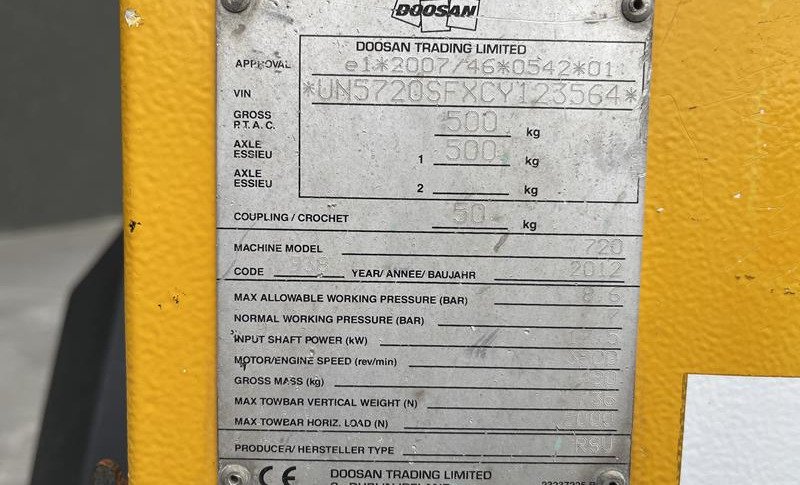 DOOSAN
DOOSAN TRADING LIMITED
APPROVAL e1*2007/46*0542*01
VIN *UN5720SFXCY123564*
GROSS P.T.A.C. 500 kg
AXLE ESSIEU 1 500 kg
AXLE ESSIEU 2 kg
COUPLING / CROCHET 50 kg
MACHINE MODEL 720
CODE YEAR/ ANNEE/ BAUJAHR 2012
MAX ALLOWABLE WORKING PRESSURE (BAR) 8.6
NORMAL WORKING PRESSURE (BAR)
INPUT SHAFT POWER (kW)
MOTOR/ENGINE SPEED (rev/min)
GROSS MASS (kg)
MAX TOWBAR VERTICAL WEIGHT (N)
MAX TOWBAR HORIZ. LOAD (N)
PRODUCER/ HERSTELLER TYPE RSU
CE DOOSAN TRADING LIMITED